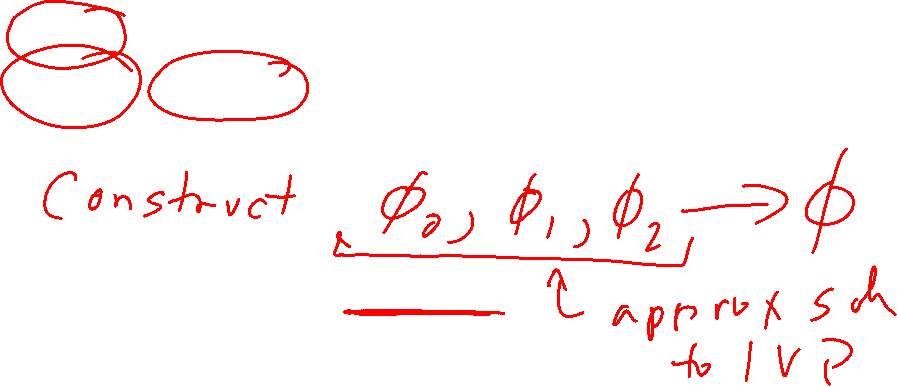 Construct ϕ₀, ϕ₁, ϕ₂ → ϕ
approx soln
to IVP